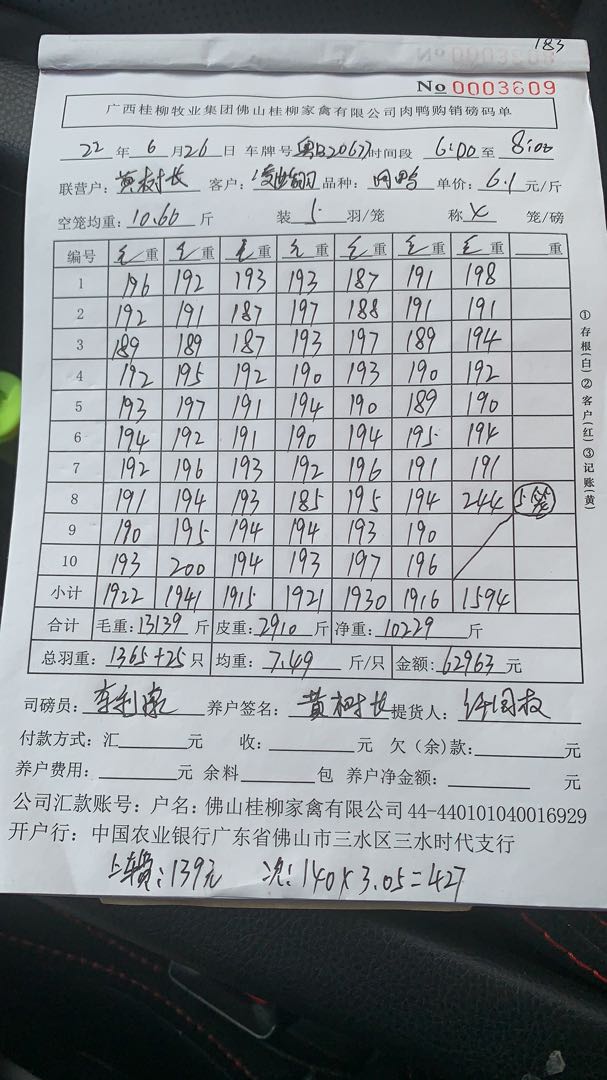 183
No 0003609
广西桂柳牧业集团佛山桂柳家禽有限公司肉鸭购销磅码单
22 年 6 月 26 日 车牌号 时间段 6:00 至 8:00
联营户: 黄树长 客户: 品种: 肉鸭 单价: 6.1 元/斤
空笼均重: 10.66 斤 装 5 羽/笼 称 笼/磅
编号 毛重 毛重 毛重 毛重 毛重 毛重 毛重 重
1 196 192 193 193 187 191 198
2 192 191 187 197 188 191 191
3 189 189 187 193 197 189 194
4 192 195 192 190 193 190 192
5 193 197 191 194 190 189 190
6 194 192 191 190 194 195 194
7 192 196 193 192 196 191 191
8 191 194 193 185 195 194 244 5笼
9 190 195 194 194 193 190
10 193 200 194 193 197 196
小计 1922 1941 1915 1921 1930 1916 1594
合计 毛重: 13139 斤 皮重: 2910 斤 净重: 10229 斤
总羽重: 1365+25 只 均重: 7.49 斤/只 金额: 62963 元
司磅员: 养户签名: 黄树长 提货人:
付款方式: 汇 元 收: 元 欠(余)款: 元
养户费用: 元 余料 包 养户净金额: 元
公司汇款账号: 户名: 佛山桂柳家禽有限公司 44-440101040016929
开户行: 中国农业银行广东省佛山市三水区三水时代支行
上车费: 139元 次: 140×3.05=427
①存根(白)②客户(红)③记账(黄)